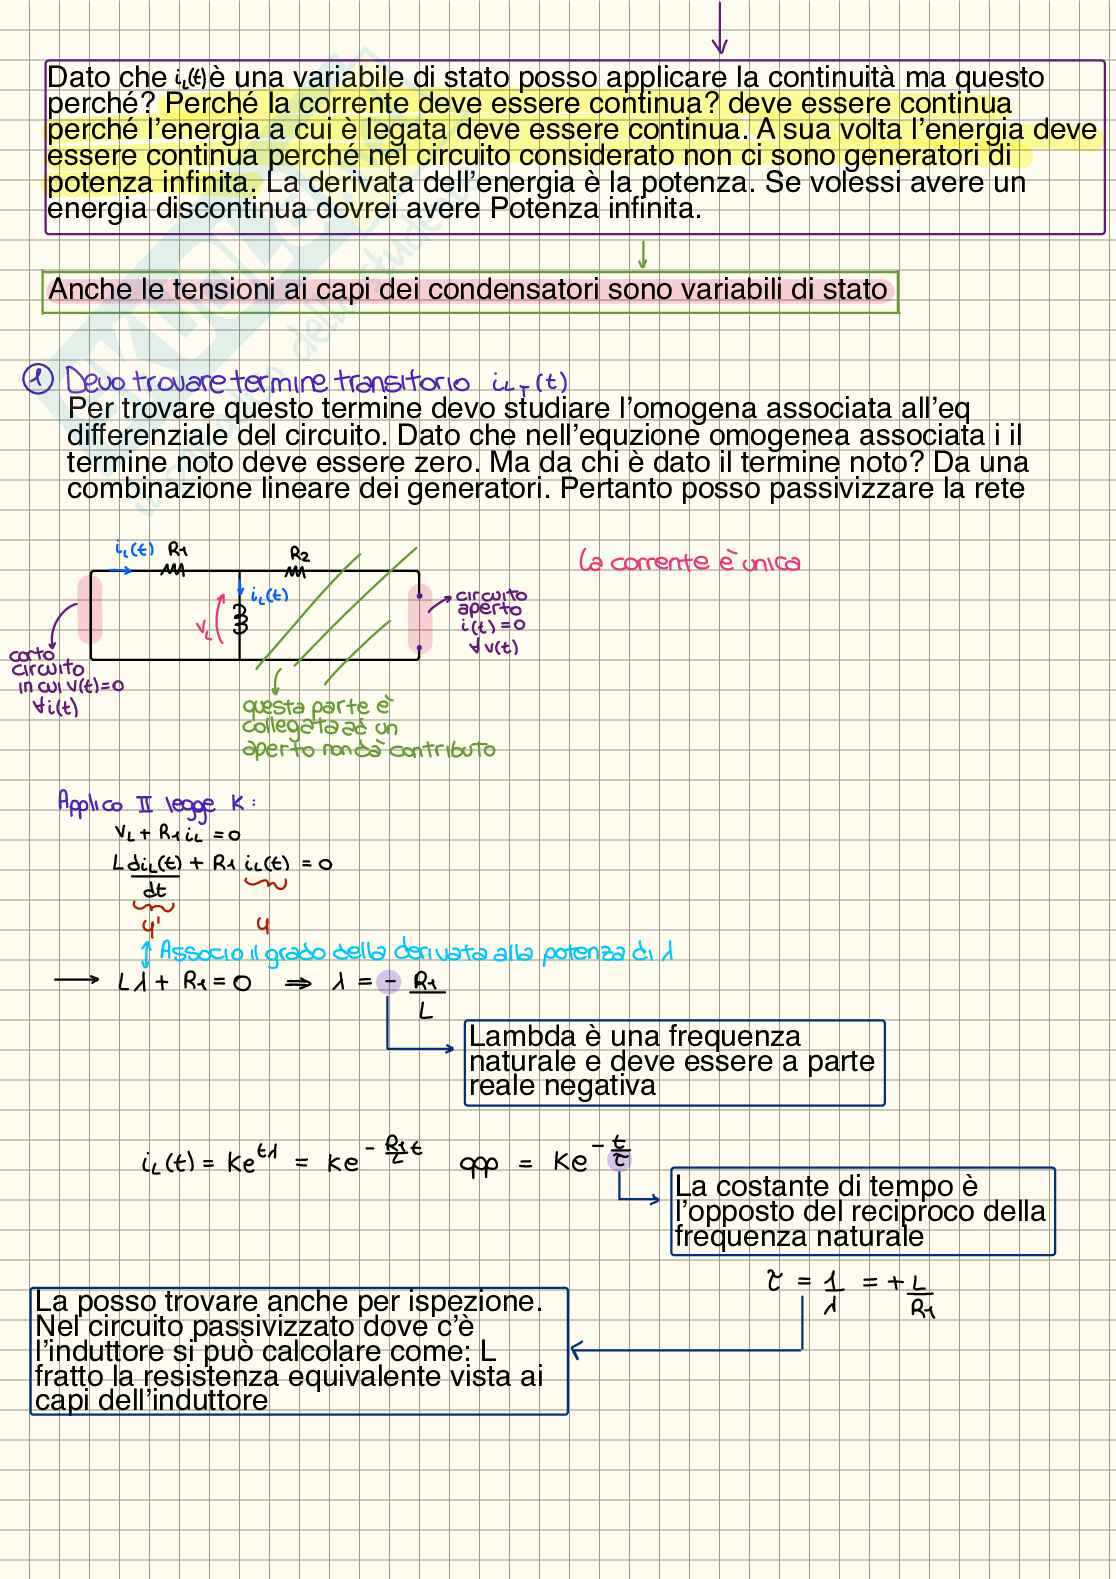 Dato che iL(t) è una variabile di stato posso applicare la continuità ma questo
perché? Perché la corrente deve essere continua? deve essere continua
perché l'energia a cui è legata deve essere continua. A sua volta l'energia deve
essere continua perché nel circuito considerato non ci sono generatori di
potenza infinita. La derivata dell'energia è la potenza. Se volessi avere un
energia discontinua dovrei avere Potenza infinita.
Anche le tensioni ai capi dei condensatori sono variabili di stato
1 Devo trovare termine transitorio iL,T(t)
Per trovare questo termine devo studiare l'omogena associata all'eq
differenziale del circuito. Dato che nell'equzione omogenea associata i il
termine noto deve essere zero. Ma da chi è dato il termine noto? Da una
combinazione lineare dei generatori. Pertanto posso passivizzare la rete
iL(t) R1 R2
La corrente è unica
iL(t)
VL
circuito
aperto
i(t) = 0
∀ v(t)
corto
circuito
in cui v(t)=0
∀i(t)
questa parte è
collegata ad un
aperto non dà contributo
Applico II legge K:
VL + R1 iL = 0
L diL(t)/dt + R1 iL(t) = 0
y' y
Associo il grado della derivata alla potenza di λ
→ Lλ + R1 = 0 ⇒ λ = - R1/L
Lambda è una frequenza
naturale e deve essere a parte
reale negativa
iL(t) = Ke^tλ = Ke^-R1/L t opp = Ke^-t/τ
La costante di tempo è
l'opposto del reciproco della
frequenza naturale
τ = 1/λ = + L/R1
La posso trovare anche per ispezione.
Nel circuito passivizzato dove c'è
l'induttore si può calcolare come: L
fratto la resistenza equivalente vista ai
capi dell'induttore